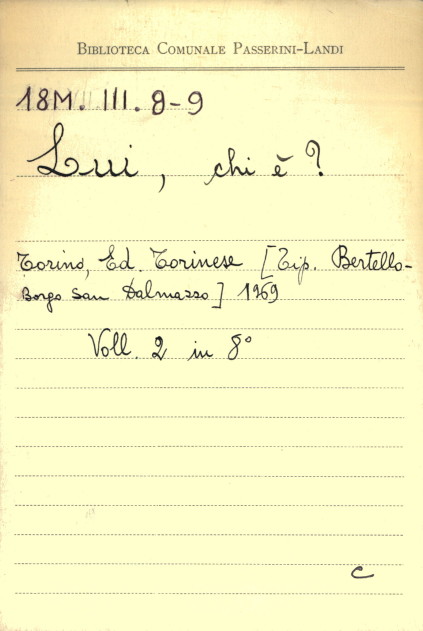 BIBLIOTECA COMUNALE PASSERINI-LANDI
18M. III. 8-9
Lui, chi è?
Torino, Ed. Torinese [Tip. Bertello-
Borgo San Dalmazzo] 1969
Voll. 2 in 8°
C